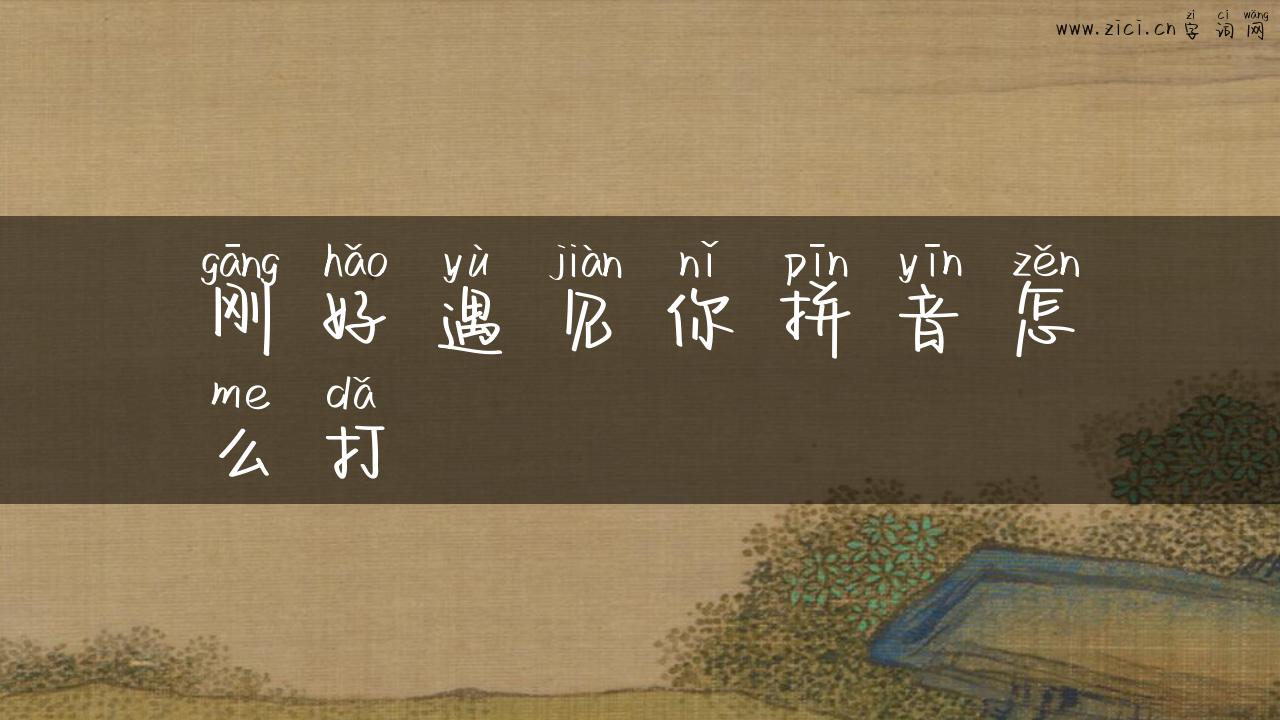 zì cí wǎng
www.zici.cn 字 词 网
gāng hǎo yù jiàn nǐ pīn yīn zěn
刚 好 遇 见 你 拼 音 怎
me dǎ
么 打